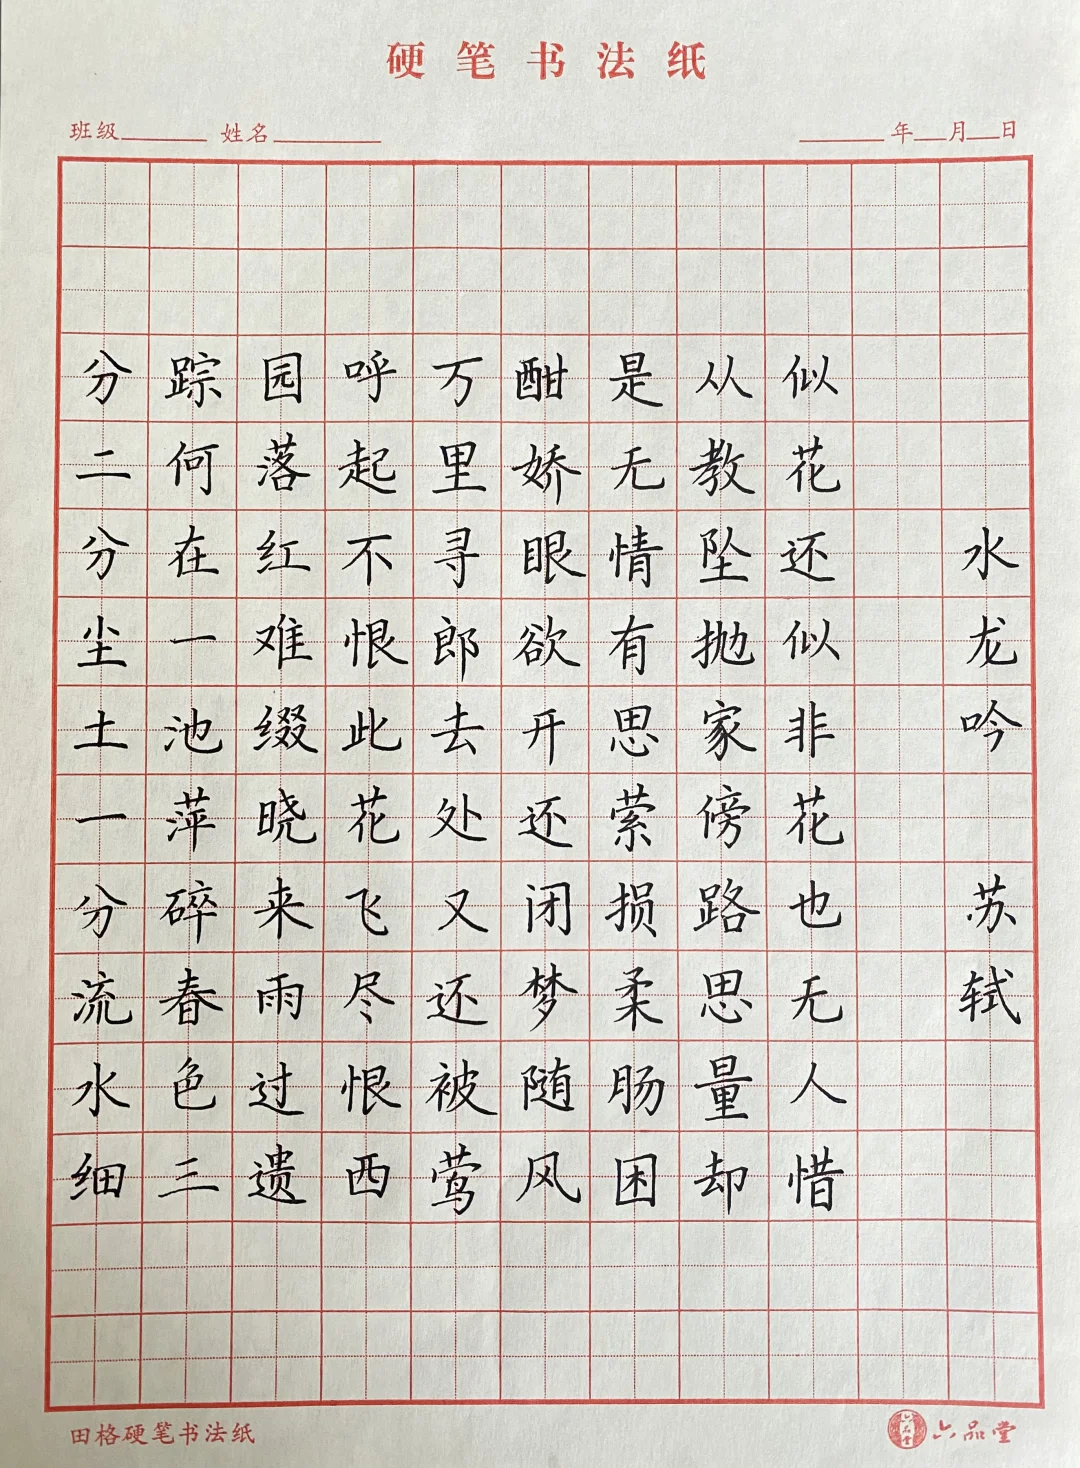 硬笔书法纸
班级 姓名 年 月 日
水龙吟 苏轼
似花还似非花也无人惜
从教坠抛家傍路思量却
是无情有思萦损柔肠困
酣娇眼欲开还闭梦随风
万里寻郎去处又还被莺
呼起不恨此花飞尽恨西
园落红难缀晓来雨过遗
踪何在一池萍碎春色三
分二分尘土一分流水细
田格硬笔书法纸
六品堂
六品堂